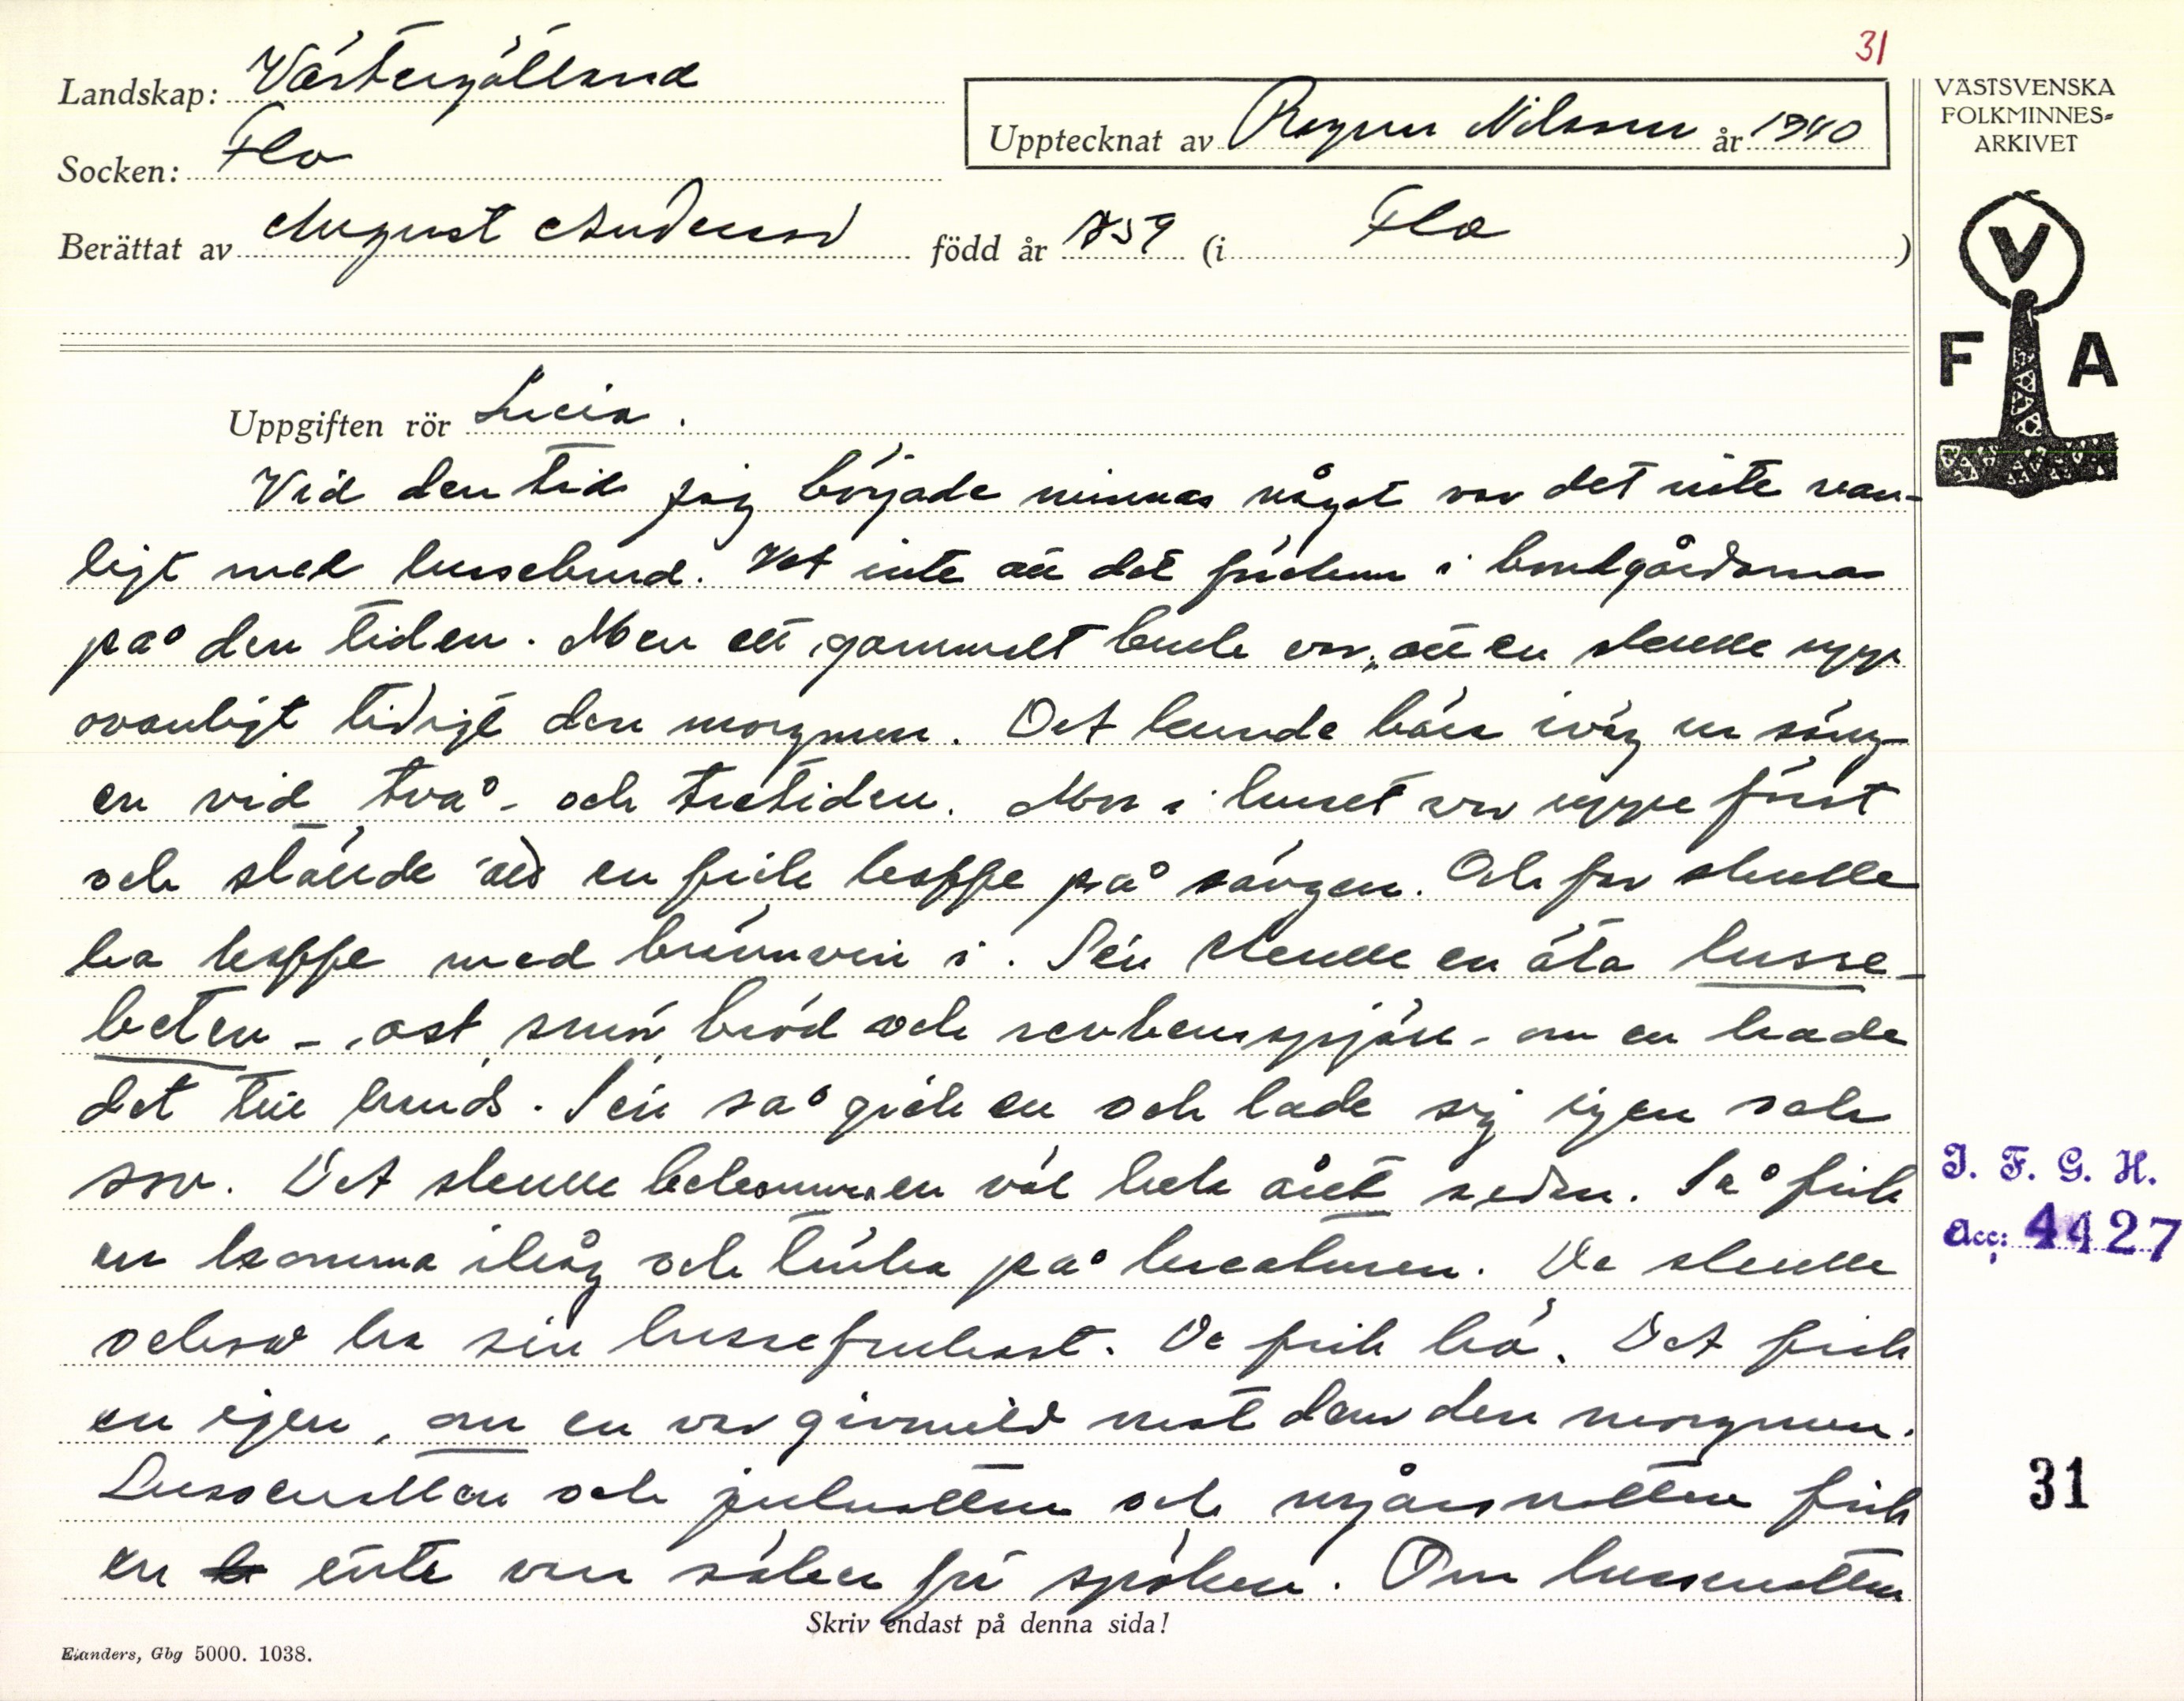 31
Landskap: Västergötland
Socken: Flo
Upptecknat av Ragnar Nilsson år 1940
Berättat av August Andersson född år 1859 (i Flo)
VÄSTSVENSKA
FOLKMINNES-
ARKIVET
V
F A
Uppgiften rör Lucia.
Vid den tid jag började minnas något var det inte van-
ligt med lussebrud. Vet inte att det förekom i bondgårdarna
på den tiden. Men ett gammalt bruk var, att en skulle upp
ovanligt tidigt den morgonen. Det kunde bära iväg ur säng-
en vid två- och tretiden. Mor i huset var uppe först
och ställde att en fick kaffe på sängen. Och far skulle
ha kaffe med brännvin i. Sen skulle en äta lusse-
beten -, ost, smör, bröd och revbensspjäll - om en hade
det till hands. Sen så gick en och lade sig igen och
sov. Det skulle bekomma en väl hela året sedan. Så fick
en komma ihåg och tänka på kreaturen. De skulle
också ha sin lussefrukost. De fick hö. Det fick
en igen, om en var givmild mot dem den morgonen.
Lussenatten och julnatten och nyårsnatten fick
en inte vara säker för spöken. Om lussenatten
Skriv endast på denna sida!
Elanders, Gbg 5000. 1038.
I. F. G. H.
Acc: 4427
31